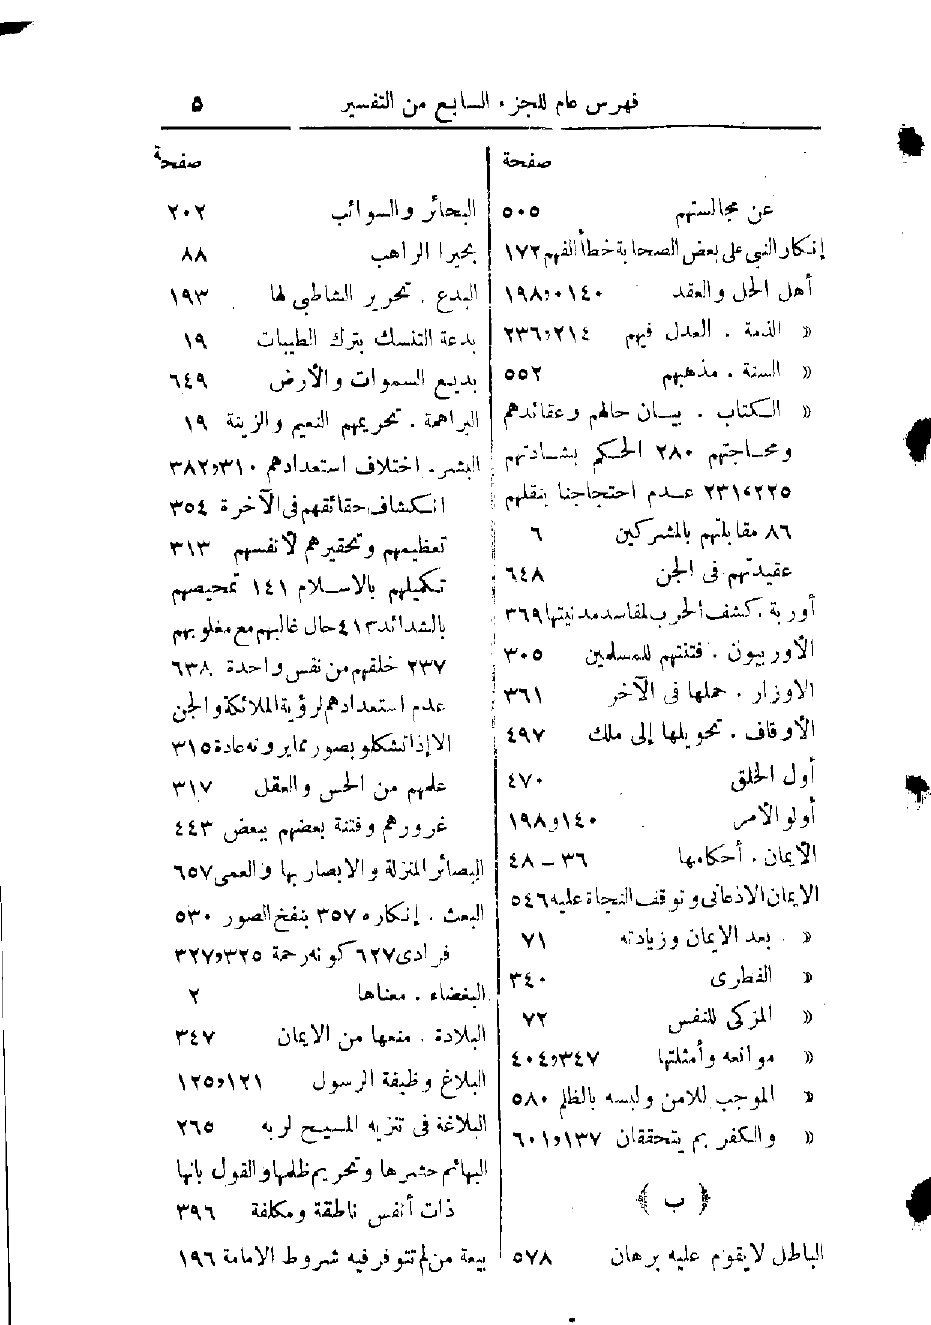 فهرس عام للجزء السابع من التفسير ٥
صفحة
عن مجالستهم ٥٠٥
إنكار النبي على بعض الصحابة خطأ الفهم ١٧٢
أهل الحل والعقد ١٤٠ و١٩٨
« الذمة . العدل فيهم ٢١٤ و٢٣٦
« السنة . مذهبهم ٥٥٢
« الكتاب . بيان حالهم وعقائدهم
ومحاجتهم ٢٨٠ الحكم بشهادتهم
٢٢٥ و٢٣١ عدم احتجاجنا بنقلهم
٨٦ مقابلتهم بالمشركين ٦
عقيدتهم فى الجن ٦٤٨
أوربة . كشف الحرب لمفاسد مدنيتها ٣٦٩
الأوربيون . فتنتهم للمسلمين ٣٠٥
الاوزار . حملها فى الآخر ٣٦١
الأوقاف . تحويلها إلى ملك ٤٩٧
أول الخلق ٤٧٠
أولو الأمر ١٤٠ و١٩٨
الأيمان . أحكامها ٣٦ – ٤٨
الايمان الاذعانى وتوقف النجاة عليه ٥٤٦
« . بعد الايمان وزيادته ٧١
« الفطرى ٣٤٠
« المزكى للنفس ٧٢
« موانعه وأمثلتها ٣٤٧ و٤٠٤
« الموجب للامن ولبسه بالظلم ٥٨٠
« والكفر بم يتحققان ١٣٧ و٦٠١
﴿ ب ﴾
الباطل لا يقوم عليه برهان ٥٧٨
صفحة
البحائر والسوائب ٢٠٢
بحيرا الراهب ٨٨
البدع . تحرير الشاطبي لها ١٩٣
بدعة التنسك بترك الطيبات ١٩
بديع السموات والأرض ٦٤٩
البراهمة . تحريمهم النعيم والزينة ١٩
البشر . اختلاف استعدادهم ٣١٠ و٣٨٢
انكشاف حقائقهم فى الآخرة ٣٥٤
تعظيمهم وتحقيرهم لأنفسهم ٣١٣
تكميلهم بالاسلام ١٤١ تمحيصهم
بالشدائد ٤١٣ حال غالبهم مع مغلوبهم
٢٣٧ خلقهم من نفس واحدة ٦٣٨
عدم استعدادهم لرؤية الملائكة والجن
الا إذا تشكلوا بصور مما يرونه عادة ٣١٥
علمهم من الحس والعقل ٣١٧
غرورهم وفتنة بعضهم ببعض ٤٤٣
البصائر المنزلة والابصار بها والعمى ٦٥٧
البعث . إنكاره ٣٥٧ بنفخ الصور ٥٣٠
فرادى ٦٢٧ كونه رحمة ٣٢٥ و٣٢٧
البغضاء . معناها ٢
البلادة . منعها من الايمان ٣٤٧
البلاغ وظيفة الرسول ١٢١ و١٢٥
البلاغة فى تنزيه المسيح لربه ٢٦٥
البهائم حشرها وتحريم ظلمها والقول بانها
ذات أنفس ناطقة ومكلفة ٣٩٦
بيعة من لم تتوفر فيه شروط الامامة ١٩٦